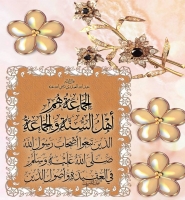 الجماعة هم
أهل السنة والجماعة
الذين تبعوا أصحاب رسول الله
صلى الله عليه وسلم
في العقيدة وأصول الدين